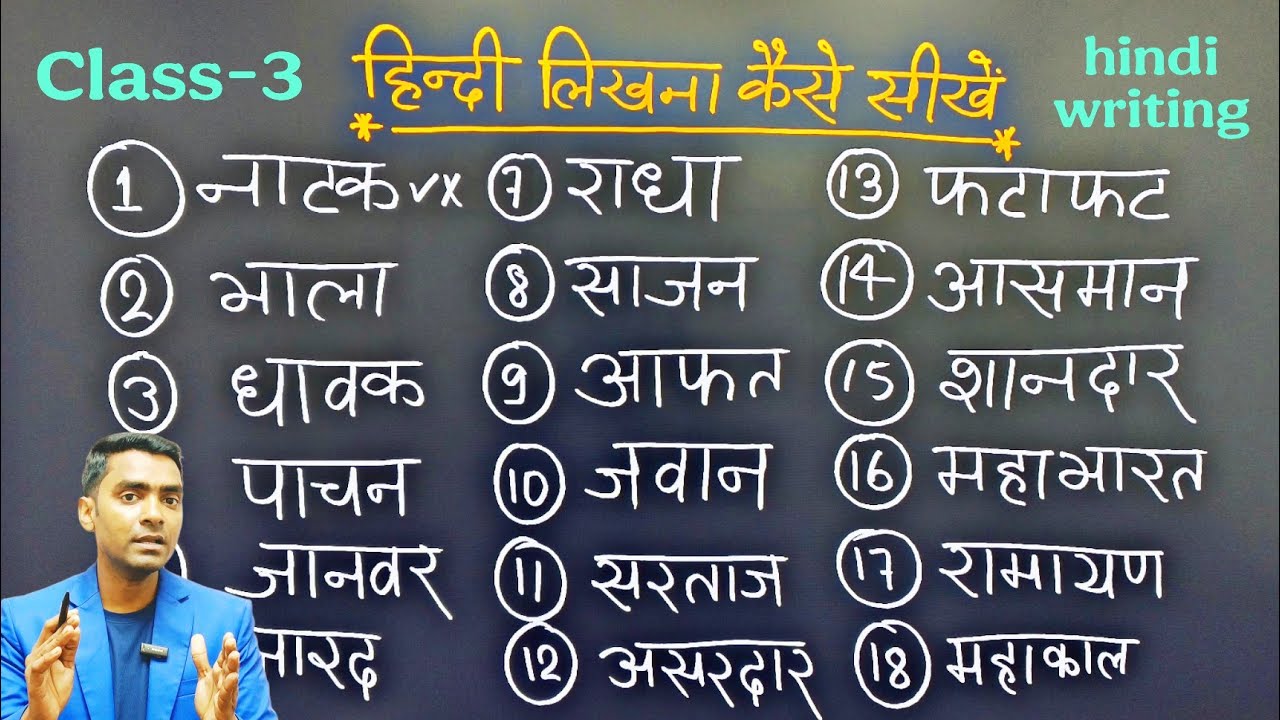 Class-3
हिन्दी लिखना कैसे सीखें
hindi
writing
1 नाटक ✓x
2 भाला
3 धावक
पाचन
जानवर
7 राधा
8 साजन
9 आफत
10 जवान
11 सरताज
12 असरदार
13 फटाफट
14 आसमान
15 शानदार
16 महाभारत
17 रामायण
18 महाकाल